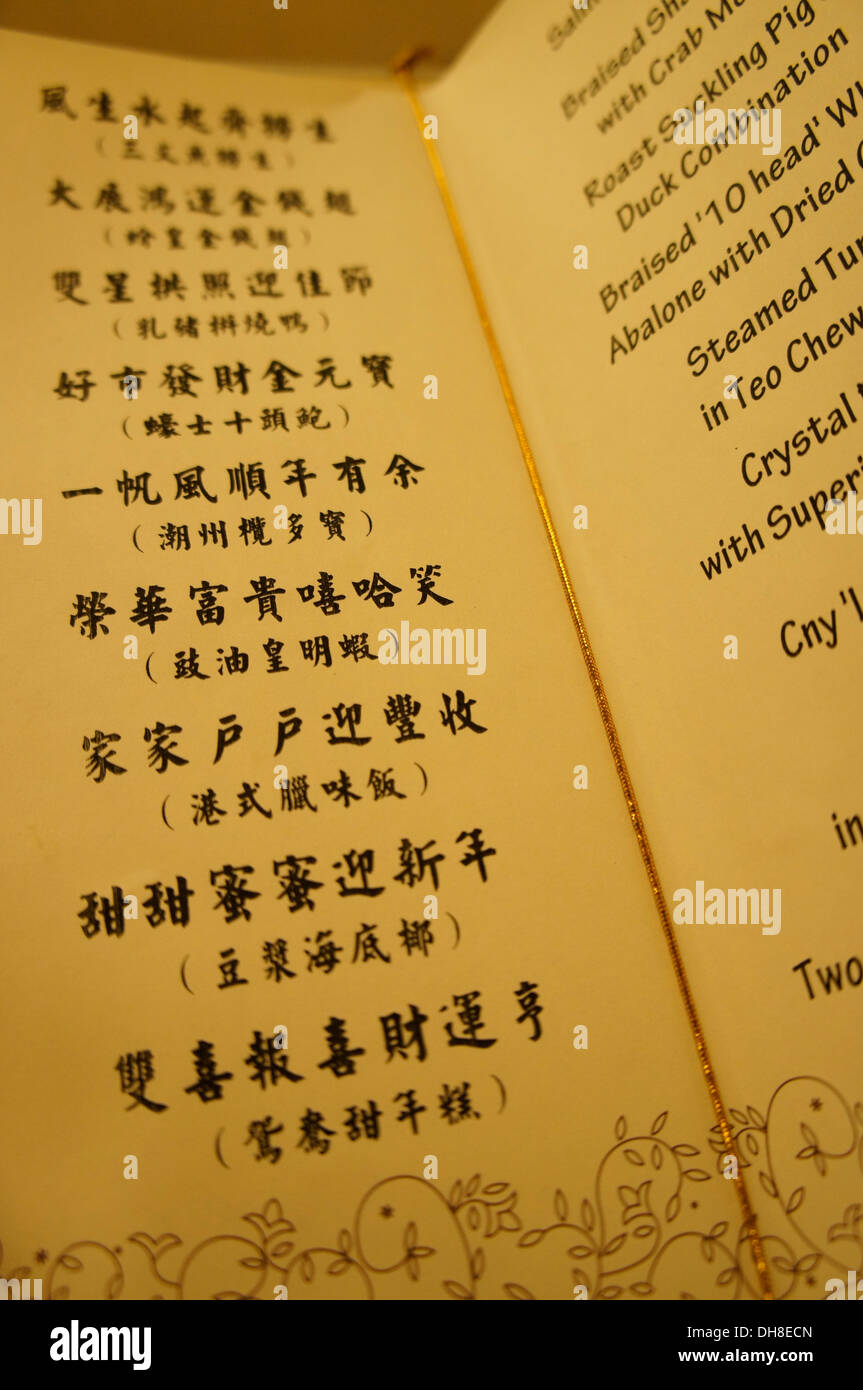 風生水起齊撈生
(三文魚撈生)
大展鴻運金錢翅
(蟹皇金錢翅)
雙星拱照迎佳節
(乳豬拼燒鴨)
好市發財金元寶
(蠔士十頭鮑)
一帆風順年有余
(潮州欖多寶)
榮華富貴嘻哈笑
(豉油皇明蝦)
家家戶戶迎豐收
(港式臘味飯)
甜甜蜜蜜迎新年
(豆漿海底椰)
雙喜報喜財運亨
(鴛鴦甜年糕)
Braised
with Crab
Roast Suckling Pig
Duck Combination
Braised '10 head'
Abalone with Dried
Steamed
in Teo Chew
Crystal
with
Cny
in
Two
alamy
Image ID: DH8ECN
www.alamy.com